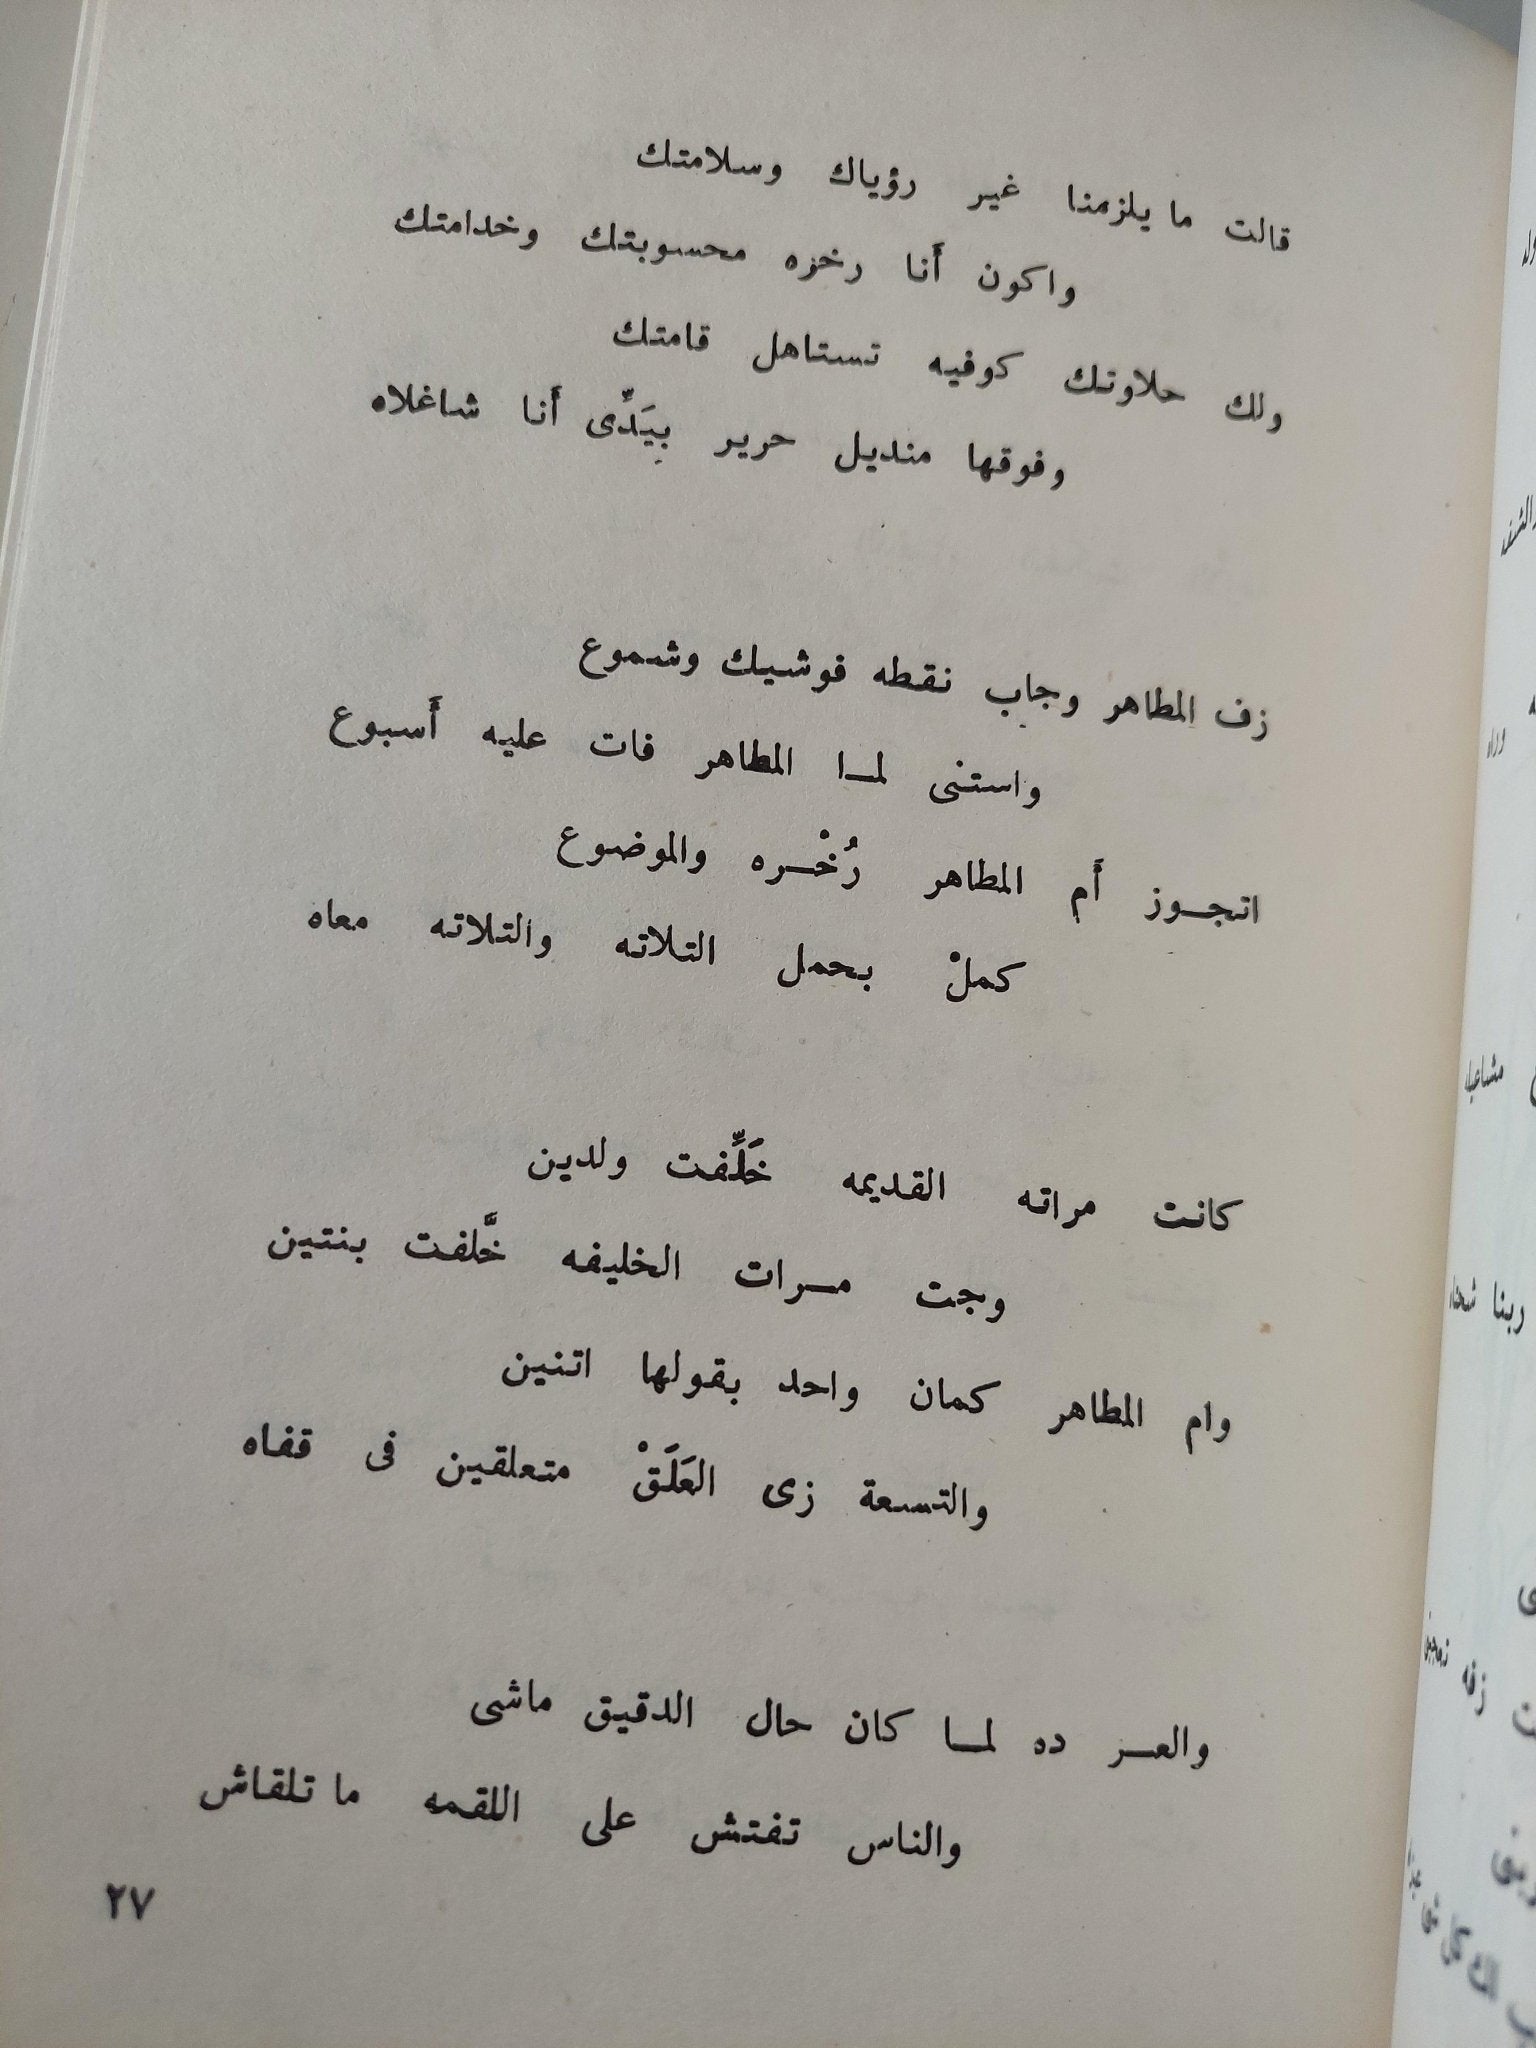 قالت ما يلزمنا غير رؤياك وسلامتك
واكون أنا رخره محسوبتك وخدامتك
ولك حلاوتك كوفيه تستاهل قامتك
وفوقها منديل حرير بيَدِّى أنا شاغلاه
زف المطاهر وجاب نقطه فوشيك وشموع
واستنى لما المطاهر فات عليه أسبوع
اتجوز أم المطاهر رُخْره والموضوع
كملْ بحمل التلاته والتلاته معاه
كانت مراته القديمه خَلِّفت ولدين
وجت مرات الخليفه خَّلفت بنتين
وام المطاهر كمان واحد بقولها اتنين
والتسعة زى العَلَقْ متعلقين فى قفاه
والعر ده لما كان حال الدقيق ماشى
والناس تفتش على اللقمه ما تلقاش
٢٧
مشاعيله
ربنا شحناه
زفه